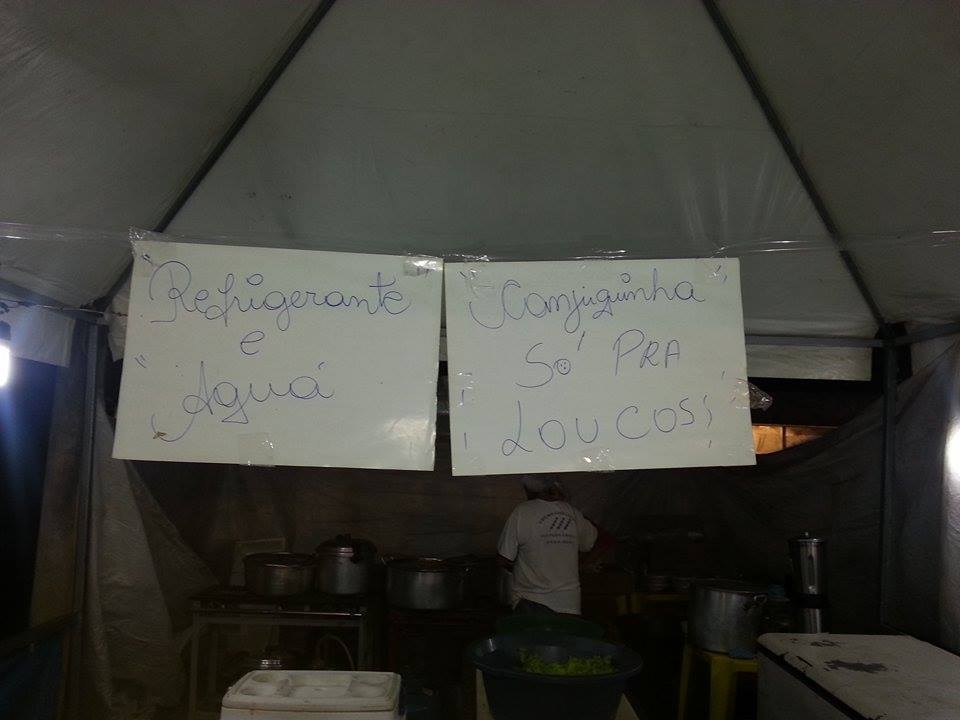 Refrigerante
e
Aguá
Canjiguinha
Só PRA
LOUCOS